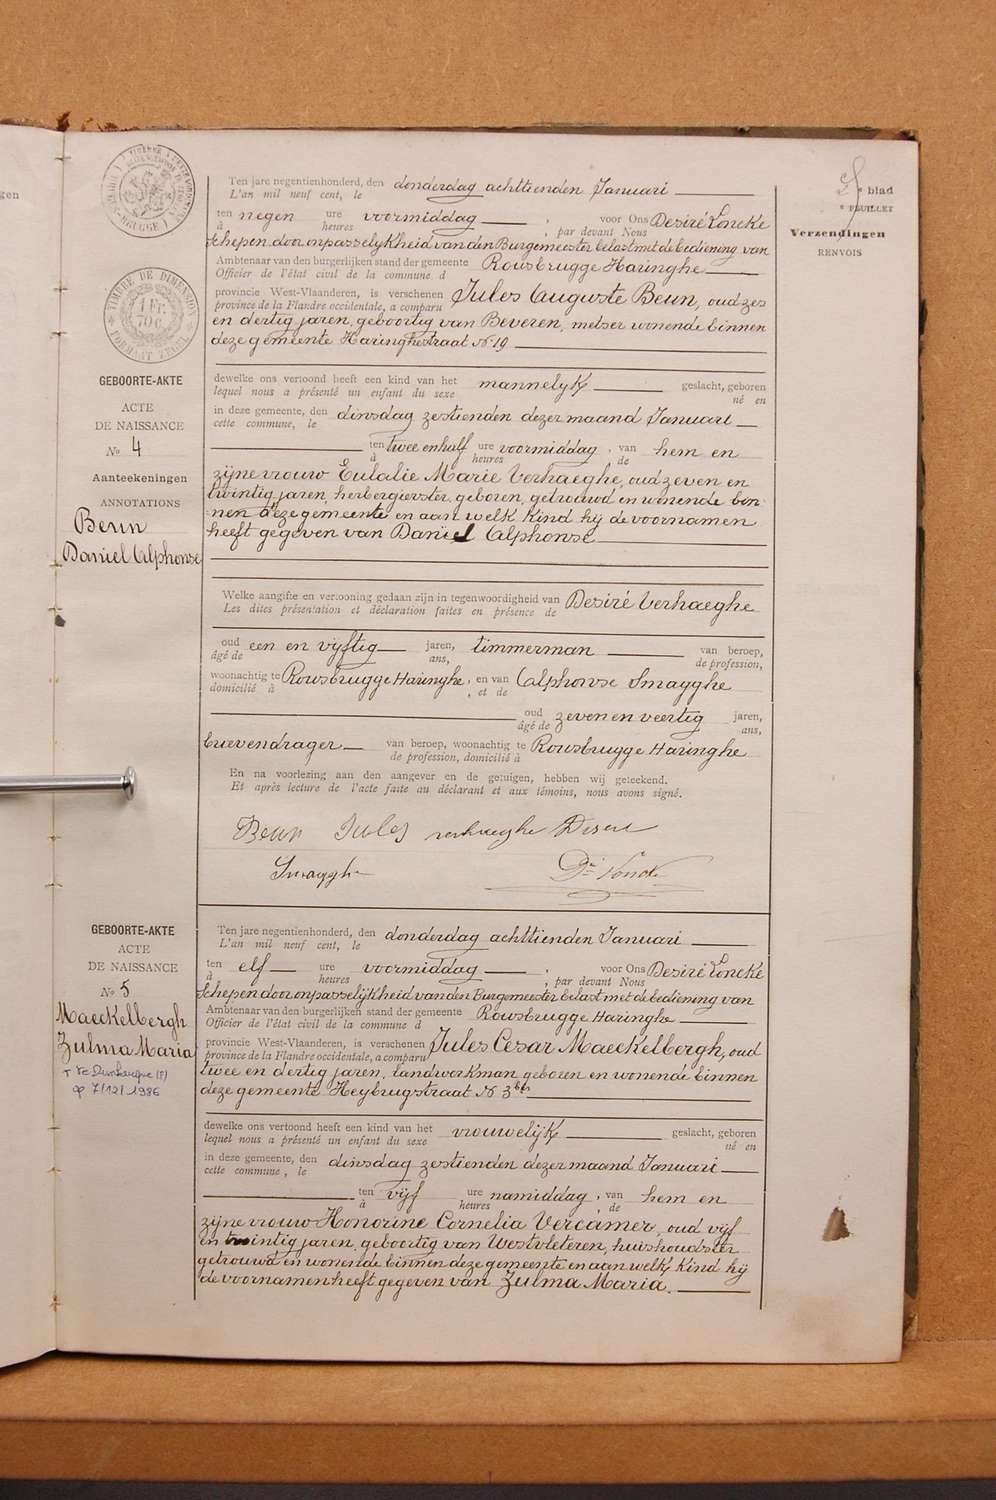 gen
2e blad
e FEUILLET
Verzendingen
RENVOIS
TIMBRE DE DIMENSION
1 Fr.
70 c.
FORMAAT ZEGEL
GEBOORTE-AKTE
ACTE
DE NAISSANCE
No 4
Aanteekeningen
ANNOTATIONS
Beun
Daniel Alphonse
Ten jare negentienhonderd, den donderdag achttienden Januari
L'an mil neuf cent, le
ten negen ure voormiddag, voor Ons Desiré Loncke
à heures, par devant Nous
Schepen door onpasselijkheid van den Burgemeester belast met de bediening van
Ambtenaar van den burgerlijken stand der gemeente Rousbrugge Haringhe
Officier de l'état civil de la commune d
provincie West-Vlaanderen, is verschenen Jules Auguste Beun, oud zes
province de la Flandre occidentale, a comparu
en dertig jaren, geboortig van Beveren, metser wonende binnen
deze gemeente Haringhestraat No 19
dewelke ons vertoond heeft een kind van het mannelijk geslacht, geboren
lequel nous a présenté un enfant du sexe né en
in deze gemeente, den dinsdag zestienden dezer maand Januari
cette commune, le
ten twee en half ure voormiddag, van hem en
à heures de
zijne vrouw Eulalie Marie Verhaeghe, oud zeven en
twintig jaren, herbergierster, geboren, getrouwd en wonende bin-
nen deze gemeente en aan welk kind hij de voornamen
heeft gegeven van Daniel Alphonse
Welke aangifte en vertooning gedaan zijn in tegenwoordigheid van Desiré Verhaeghe
Les dites présentation et déclaration faites en présence de
oud een en vijftig jaren, timmerman van beroep,
âgé de ans, de profession,
woonachtig te Rousbrugge Haringhe, en van Alphonse Smagghe
domicilié à, et de
oud zeven en veertig jaren,
âgé de ans,
brievendrager van beroep, woonachtig te Rousbrugge Haringhe
de profession, domicilié à
En na voorlezing aan den aangever en de getuigen, hebben wij geteekend.
Et après lecture de l'acte faite au déclarant et aux témoins, nous avons signé.
Beun Jules verhaeghe Desiré
Smagghe Dé Loncke
GEBOORTE-AKTE
ACTE
DE NAISSANCE
No 5
Maeckelbergh
Zulma Maria
† te Dunkerque (F)
op 7/12/1986
Ten jare negentienhonderd, den donderdag achttienden Januari
L'an mil neuf cent, le
ten elf ure voormiddag, voor Ons Desiré Loncke
à heures, par devant Nous
Schepen door onpasselijkheid van den Burgemeester belast met de bediening van
Ambtenaar van den burgerlijken stand der gemeente Rousbrugge Haringhe
Officier de l'état civil de la commune d
provincie West-Vlaanderen, is verschenen Jules Cesar Maeckelbergh, oud
province de la Flandre occidentale, a comparu
twee en dertig jaren, landwerkman geboren en wonende binnen
deze gemeente Heybrugstraat No 3bis
dewelke ons vertoond heeft een kind van het vrouwelijk geslacht, geboren
lequel nous a présenté un enfant du sexe né en
in deze gemeente, den dinsdag zestienden dezer maand Januari
cette commune, le
ten vijf ure namiddag, van hem en
à heures, de
zijne vrouw Honorine Cornelia Vercamer, oud vijf
en twintig jaren, geboortig van Westvleteren, huishoudster
getrouwd en wonende binnen deze gemeente en aan welk kind hij
de voornamen heeft gegeven van Zulma Maria.